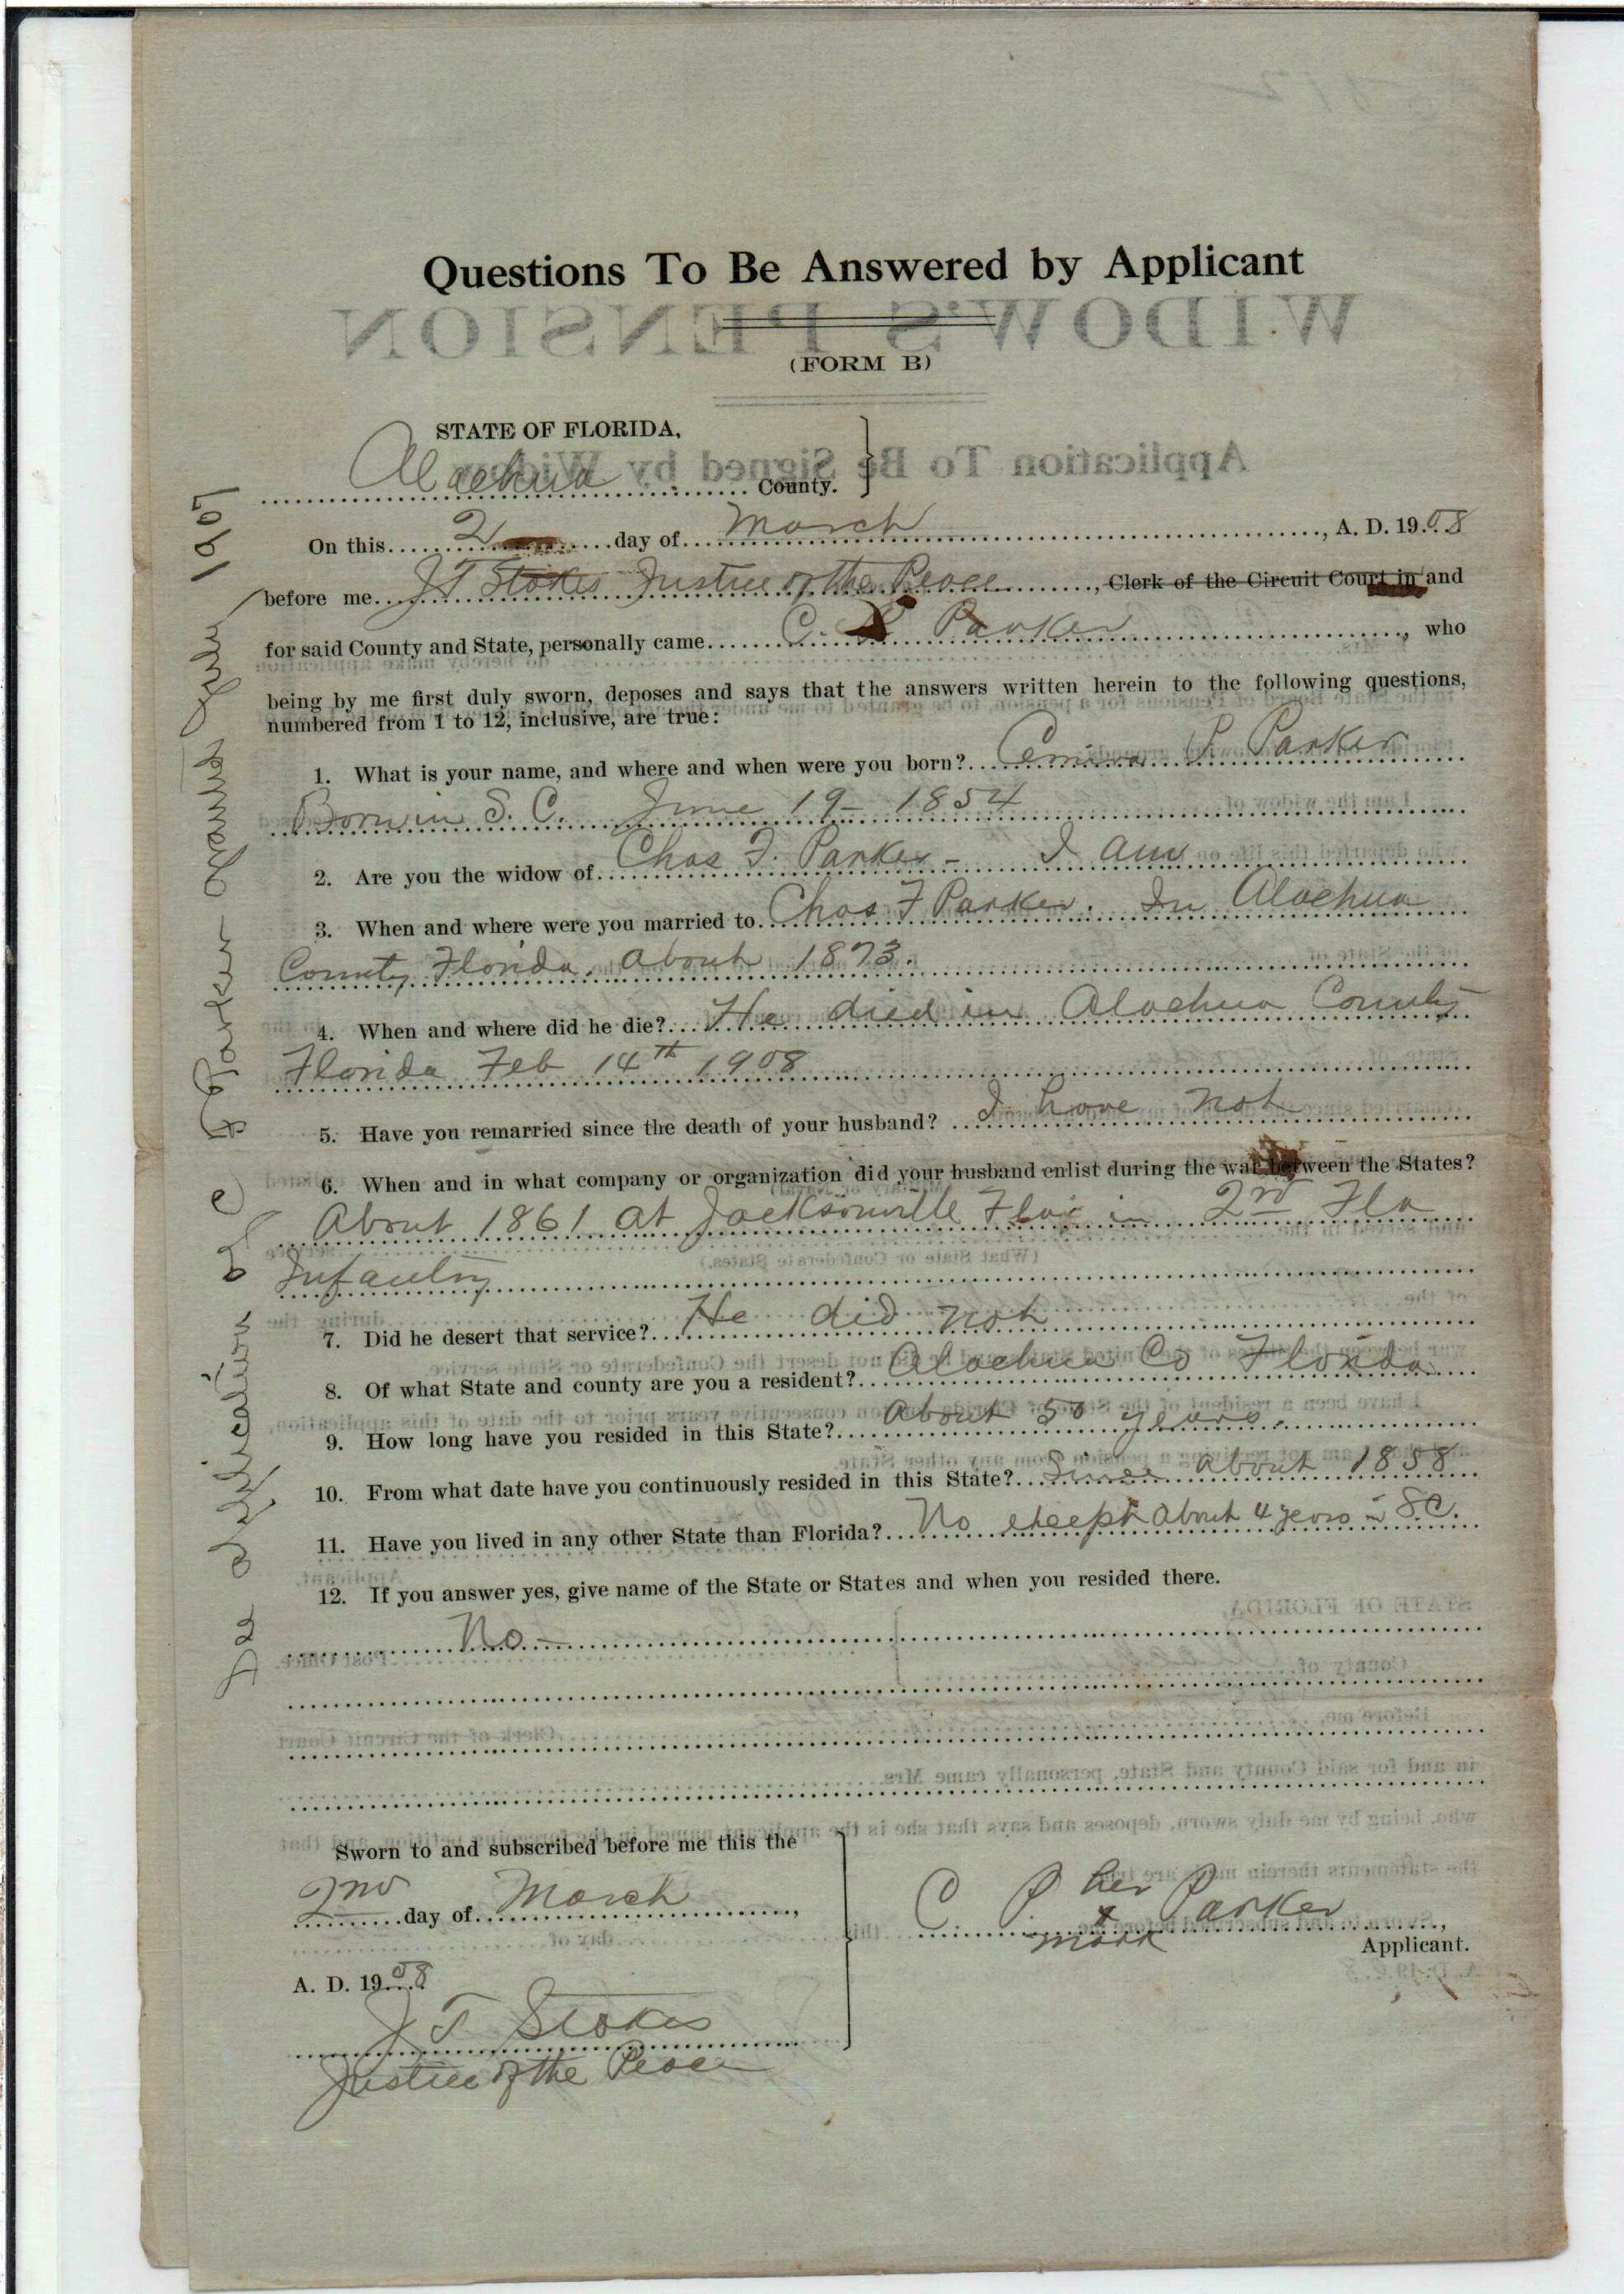 Questions To Be Answered by Applicant
(FORM B)
STATE OF FLORIDA,
Alachua County.
On this 2 day of March, A. D. 1908
before me J T Stokes Justice of the Peace, Clerk of the Circuit Court in and
for said County and State, personally came C. P Parker, who
being by me first duly sworn, deposes and says that the answers written herein to the following questions,
numbered from 1 to 12, inclusive, are true:
1. What is your name, and where and when were you born? P Parker
Born in S. C. June 19 - 1854
2. Are you the widow of Chas F. Parker - I am
3. When and where were you married to Chas F Parker. In Alachua
County Florida. About 1873.
4. When and where did he die? He died in Alachua County
Florida Feb 14th 1908
5. Have you remarried since the death of your husband? I have not
6. When and in what company or organization did your husband enlist during the war between the States?
About 1861 at Jacksonville Fla in 2nd Fla
Infantry
7. Did he desert that service? He did not
8. Of what State and county are you a resident? Alachua Co Florida
9. How long have you resided in this State? About 50 years.
10. From what date have you continuously resided in this State? Since about 1858
11. Have you lived in any other State than Florida? No except about 4 years in S.C.
12. If you answer yes, give name of the State or States and when you resided there.
No -
Sworn to and subscribed before me this the
2nd day of March,
A. D. 1908
J T Stokes
Justice of the Peace
C. P her Parker,
x
mark
Applicant.
See application of C F Parker granted July 1907
WIDOW'S PENSION
Application To Be Signed by Widow